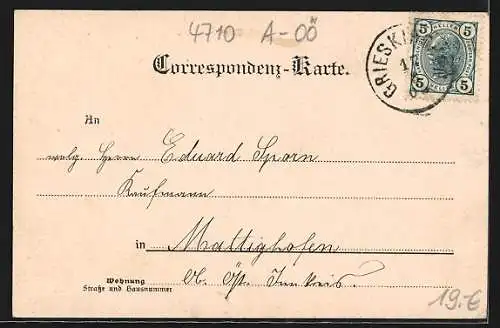 4710 A-OÖ
5 HELLER 5
GRIESKI
Correspondenz-Karte.
An
wolg Herrn Eduard Sporn
Kaufmann
in Mattighofen
Ob. Öst. Innkreis.
Wohnung
Straße und Hausnummer
19.-€